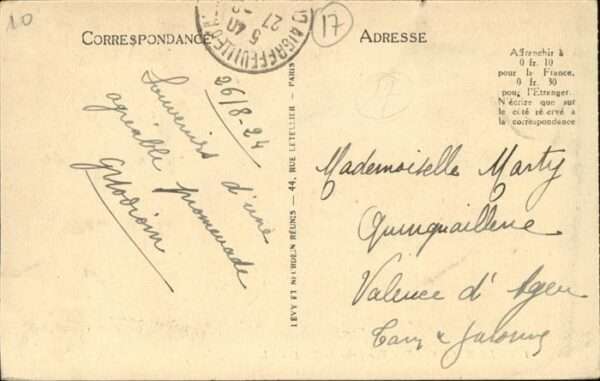 10
17
CORRESPONDANCE
ADRESSE
D'AIGREFEUILLE
5 40
27
Affranchir à
0 fr. 10
pour la France,
0 fr. 30
pour l'Etranger.
N'écrire que sur
le côté réservé à
la correspondance
26/8-24
Souvenirs d'une
agréable promenade
LEVY ET NEURDEIN RÉUNIS — 44, RUE LETELLIER — PARIS
Mademoiselle Marty
Quinquaillerie
Valence d'Agen
Tarn & Garonne